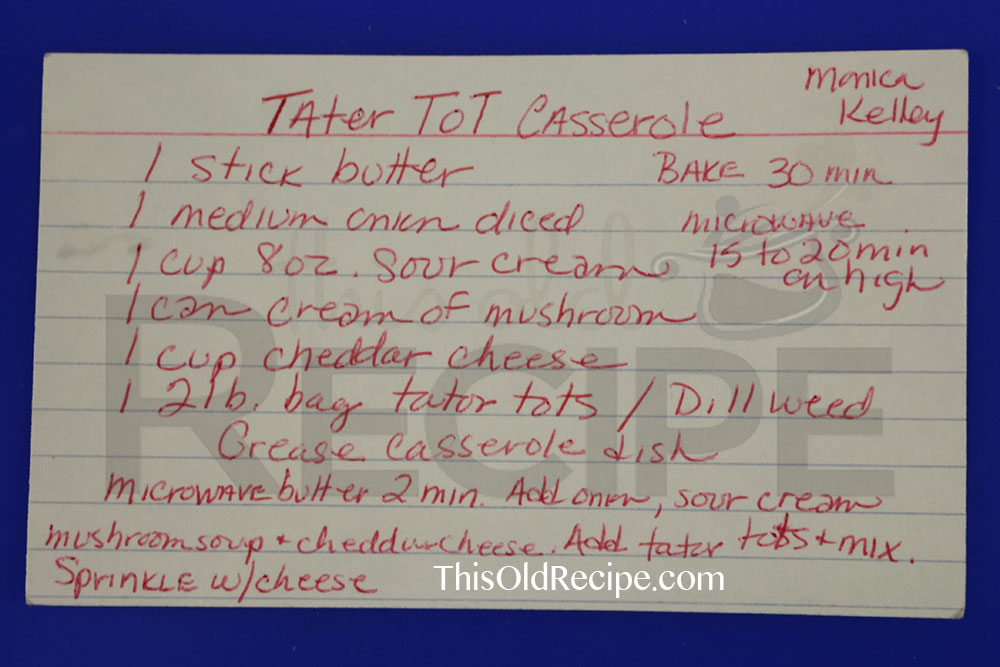 Monica
Kelley
Tater Tot Casserole
1 stick butter
BAKE 30 min
1 medium onion diced
microwave
15 to 20 min
on high
1 cup 8oz. sour cream
1 can cream of mushroom
1 cup cheddar cheese
1 2lb. bag tator tots / Dill weed
Grease casserole dish
Microwave butter 2 min. Add onion, sour cream
mushroom soup + cheddar cheese. Add tater tots + mix.
Sprinkle w/cheese
This old
RECIPE
ThisOldRecipe.com